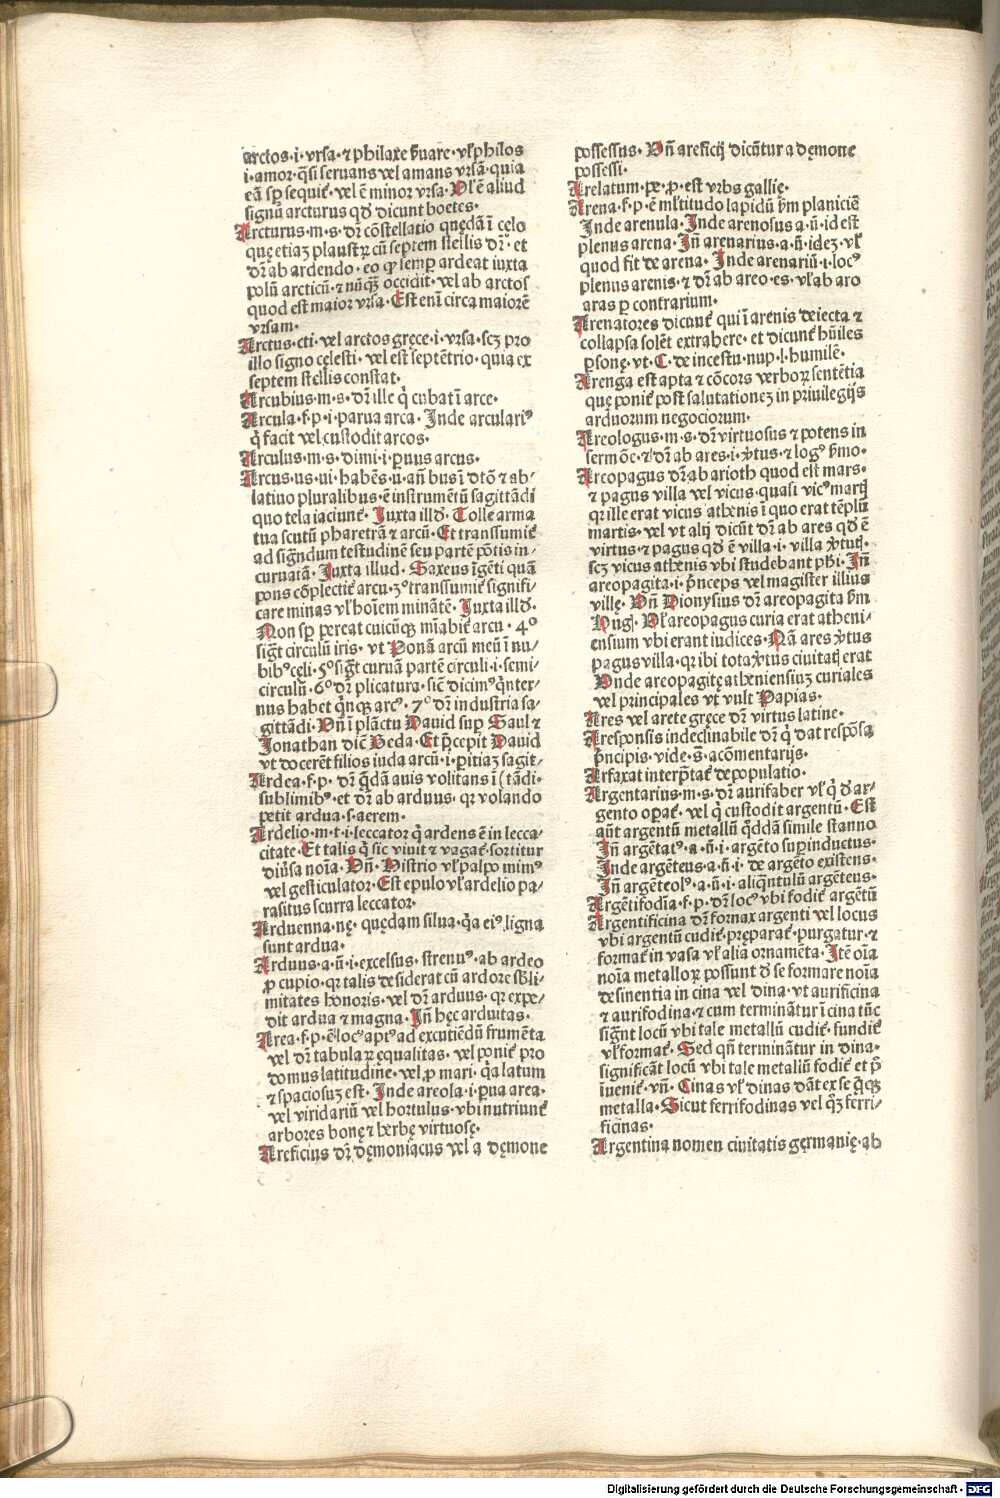 arctos·i·vrsa·⁊ philaxe ẜuare·vł philos
i·amor·q̄si seruans vel amans vrsā·quia
eā sꝑ sequit᷑·vel ē minor vrsa·Vł ē aliud
signū arcturus qd̄ dicunt boetes·
Arcturus·m·s·dr̄ cōstellatio quędā ī cęlo
quę etiaꝫ plaustꝝ cū septem stellis dr̄·et
dr̄ ab ardendo·eo ꝙ semꝑ ardeat iuxta
polū arcticū·⁊ nūqꝫ occidit·vel ab arctos
quod est maior vrsa·Est enī circa maiorē
vrsam·
Arctus·cti·vel arctos gręce·i·vrsa·scꝫ pro
illo signo cęlesti·vel est septētrio·quia ex
septem stellis constat·
Arcubius·m·s·dr̄ ille q̇ cubat ī arce·
Arcula·f·p·i·parua arca·Inde arculariꝰ
q̇ facit vel custodit arcos·
Arculus·m·s·dimi·i·ꝑuus arcus·
Arcus·us·ui·habēs·u·an̄ bus ī dtō ⁊ ab-
latiuo pluralibus·ē instrumētū sagittādi
quo tela iaciunt᷑·Juxta illd̄·Tolle arma
tua scutū pharetrā ⁊ arcū·Et transsumit᷑
ad signādum testudinē seu partē pōtis in-
curuatā·Juxta illud·Saxeus īgēti quā
pons cōplectit᷑ arcu·3º transsumit᷑ signifi-
care minas vł hoīem minātē·Juxta illd̄·
Non sꝑ pereat cuicūqꝫ mīabit᷑ arcu·4º
sigt̄ circulū iris·vt Ponā arcū meū ī nu-
bibꝰ cęli·5º sigt̄ curuā partē circuli·i·semi-
circulū·6º dr̄ plicatura·sic̄ dicimꝰ q̇nter-
nus habet q̇nqꝫ arcꝰ·7º dr̄ industria sa-
gittādi·Vn̄ ī plāctu Dauid suꝑ Saul ⁊
Jonathan dic̄ Beda·Et p̄cepit Dauid
vt docerēt filios iuda arcū·i·ꝑitiaꝫ sagit-
Ardea·f·p·dr̄ q̄dā auis volitans ī (tādi·
sublimibꝰ·et dr̄ ab arduus·qꝛ volando
petit ardua·s·aerem·
Ardelio·m·t·i·leccator q̇ ardens ē in lecca-
citate·Et talis q̇ sic viuit ⁊ vagat᷑·sortitur
diūsa noīa·Vn̄·Histrio vł palpo mimꝰ
vel gesticulator·Est epulo vł ardelio pa-
rasitus scurra leccator·
Arduenna·nę·quędam silua·q̇a eiꝰ ligna
sunt ardua·
Arduus·a·ū·i·excelsus·strenuꝰ·ab ardeo
ꝓ cupio·qꝛ talis desiderat cū ardore sbli-
mitates honoris·vel dr̄ arduus·qꝛ expe-
dit ardua ⁊ magna·Jn̄ hęc arduitas·
Area·f·p·ē locꝰ aptꝰ ad excutiēdū frumēta
vel dr̄ tabulaꝝ ęqualitas·vel ponit᷑ pro
domus latitudine·vel ꝓ mari·q̇a latum
⁊ spaciosuꝫ est·Inde areola·i·ꝑua area·
vel viridariū vel hortulus·vbi nutriunt᷑
arbores bonę ⁊ herbę virtuosę·
Areficius dr̄ dęmoniacus vel a dęmone
possessus·Vn̄ areficij dicūtur a dęmone
possessi·
Arelatum·pe·ꝓ·est vrbs gallię·
Arena·f·p·ē mltitudo lapidū ẜm planiciē
Inde arenula·Inde arenosus·a·ū·id est
plenus arena·Jn̄ arenarius·a·ū·ideꝫ·vł
quod fit de arena·Inde arenariū·i·locꝰ
plenus arenis·⁊ dr̄ ab areo·es·vł ab aro
aras ꝑ contrarium·
Arenatores dicunt᷑ qui ī arenis deiecta ⁊
collapsa solēt extrahere·et dicunt᷑ hūiles
ꝑsonę·vt·C·de incestu·nup·l·humilē·
Arenga est apta ⁊ cōcors verboꝝ sentētia
quę ponit᷑ post salutationeꝫ in priuilegijs
arduorum negociorum·
Areologus·m·s·dr̄ virtuosus ⁊ potens in
sermōe·⁊ dr̄ ab ares·i·v̇tus·⁊ logꝰ ẜmo·
Areopagus dr̄ ab arioth quod est mars·
⁊ pagus villa vel vicus·quasi vicꝰ martꝭ
qꝛ ille erat vicus athenis ī quo erat tēplū
martis·vel vt alij dicūt dr̄ ab ares qd̄ ē
virtus·⁊ pagus qd̄ ē villa·i·villa v̇tutꝭ·
scꝫ vicus athenis vbi studebant ph̄i·Jn̄
areopagita·i·p̄nceps vel magister illius
villę·Vn̄ Dionysius dr̄ areopagita ẜm
Hugꝭ·Vł areopagus curia erat atheni-
ensium vbi erant iudices·Nā ares v̇tus
pagus villa·qꝛ ibi tota v̇tus ciuitatꝭ erat
Vnde areopagitę atheniensiuꝫ curiales
vel principales vt vult Papias·
Ares vel arete gręce dr̄ virtus latine·
Aresponsis indeclinabile dr̄ q̇ dat respōsa
p̄ncipis·vide·s·acōmentarijs·
Arfaxat interp̄tat᷑ depopulatio·
Argentarius·m·s·dr̄ aurifaber vł q̇ d̄ ar-
gento oꝑat᷑·vel q̇ custodit argentū·Est
aūt argentū metallū q̇ddā simile stanno
Jn̄ argētatꝰ·a·ū·i·argēto suꝑinductus·
Inde argēteus·a·ū·i·de argēto existens·
Jn̄ argēteolꝰ·a·ū·i·aliq̄ntulū argēteus·
Argētifodīa·f·p·dr̄ locꝰ vbi fodit᷑ argētū
Argentificina dr̄ fornax argenti vel locus
vbi argentū cudit᷑·pręparat᷑·purgatur·⁊
formatꝭ in vasa vł alia ornamēta·Itē oīa
noīa metalloꝝ possunt d̄ se formare noīa
desinentia in cina vel dina·vt aurificina
⁊ aurifodina·⁊ cum terminātur ī cina tūc
sign̄t locū vbi tale metallū cudit᷑·fundit᷑
vł format᷑·Sed qn̄ terminātur in dina·
significāt locū vbi tale metallū fodit᷑ et p̄
īuenit᷑·vn̄·Cinas vł dinas dāt ex se q̇qꝫ
metalla·Sicut ferrifodinas vel qꝫ ferri-
ficinas·
Argentina nomen ciuitatis germanię·ab
Digitalisierung gefördert durch die Deutsche Forschungsgemeinschaft - DFG